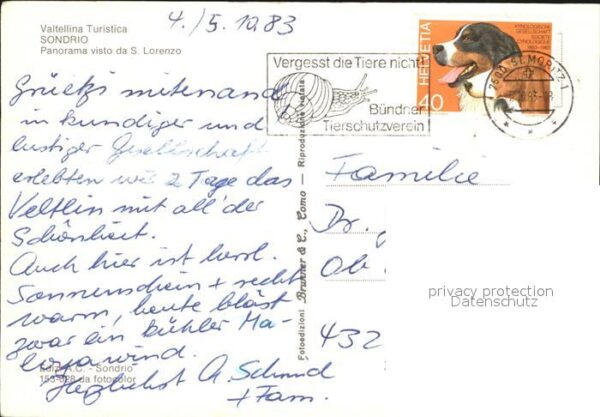 Valtellina Turistica
SONDRIO
Panorama visto da S. Lorenzo
4./5. 1983
Grüetzi mitenand
in kundiger und
lustiger Gesellschaft
erlebten wir 2 Tage das
Veltlin mit all' der
Schönheit.
Auch hier ist herrl.
Sonnenschein + recht
warm, heute bläst
zwar ein kühler Ma-
lojawind.
Herzlichst A. Schmid
+ Fam.
Ediz. A.C. - Sondrio
153-028 da fotocolor
Fotoedizioni Brunner & C., Como - Riproduzione vietata
Vergesst die Tiere nicht!
Bündner
Tierschutzverein
HELVETIA
40
KYNOLOGISCHE
GESELLSCHAFT
SOCIETE
CYNOLOGIQUE
1883-1983
7500 ST. MORITZ 1
Familie
Dr.
Ob.
432
privacy protection
Datenschutz